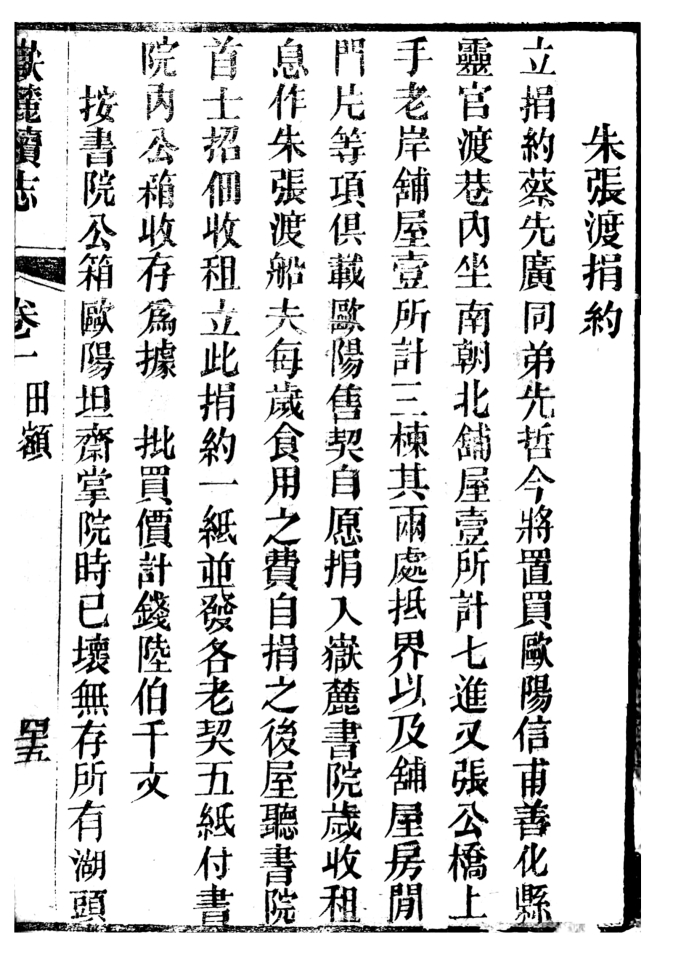 朱張渡捐約
立捐約蔡先廣同弟先哲今將置買歐陽信甫善化縣
靈官渡巷內坐南朝北舖屋壹所計七進又張公橋上
手老岸舖屋壹所計三棟其兩處抵界以及舖屋房間
門片等項俱載歐陽售契自愿捐入嶽麓書院歲收租
息作朱張渡船夫每歲食用之費自捐之後屋聽書院
首士招佃收租立此捐約一紙並發各老契五紙付書
院內公箱收存爲據　批買價計錢陸伯千文
按書院公箱歐陽坦齋掌院時已壞無存所有湖頭
嶽麓續志　卷一　田額　四五